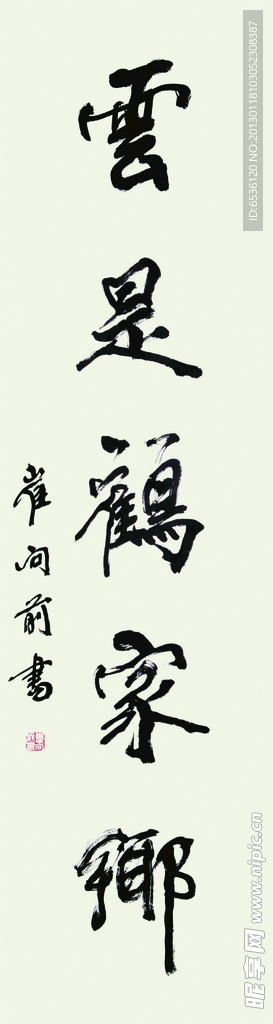 雲是鶴家鄉
崔向前書
ID:6536120 NO:20130118103052308387
昵享网 www.nipic.cn